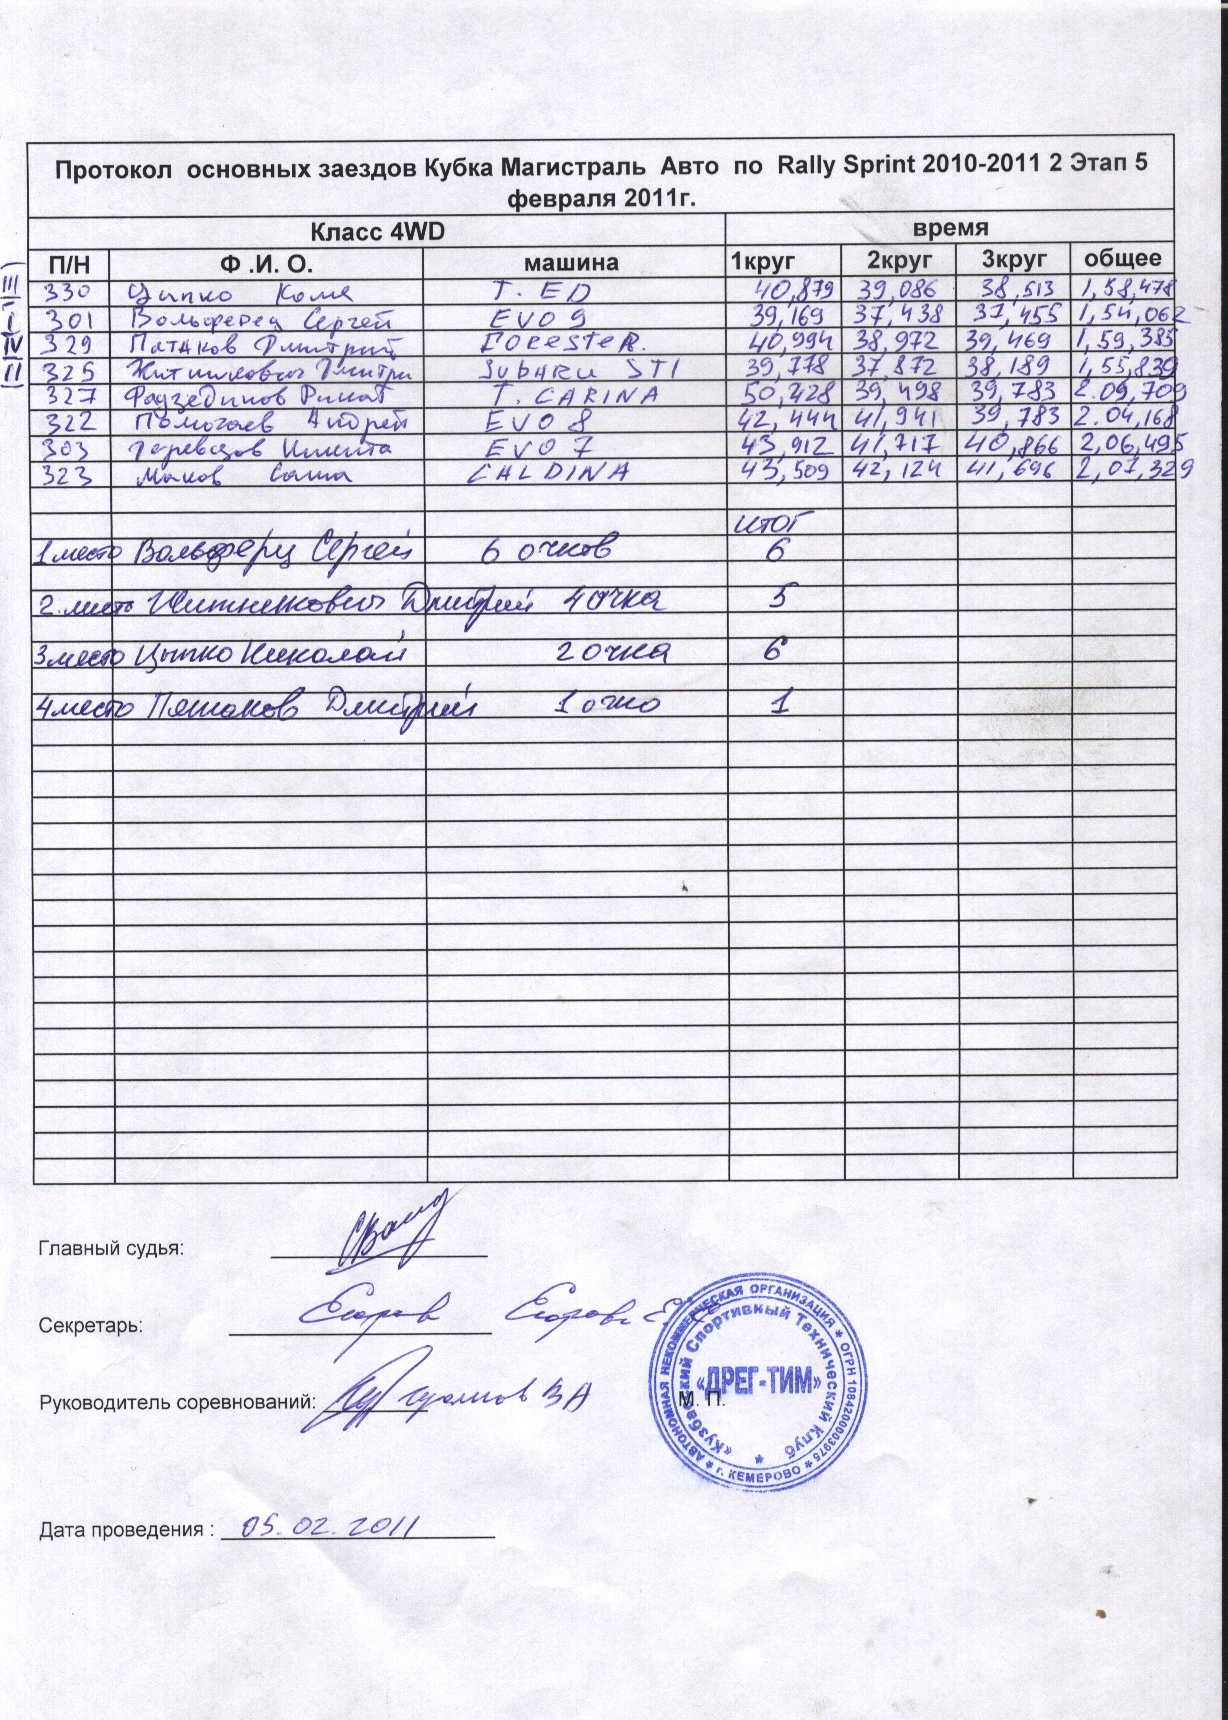 Протокол основных заездов Кубка Магистраль Авто по Rally Sprint 2010-2011 2 Этап 5
февраля 2011г.
Класс 4WD время
П/Н Ф .И. О. машина 1круг 2круг 3круг общее
III 330 Цыпко Коля T. ED 40,879 39,086 38,513 1,58,478
I 301 Вольферец Сергей EVO 9 39,169 37,438 37,455 1,54,062
IV 329 Патаков Дмитрий FORESTER. 40,994 38,972 39,469 1,59,385
II 325 Житникович Дмитри SUBARU STI 39,778 37,872 38,189 1,55,839
327 Фаузединов Ринат T. CARINA 50,428 39,498 39,783 2.09,709
322 Помогаев Андрей EVO 8 42,444 41,941 39,783 2.04,168
303 Никита EVO 7 43,912 41,717 40,866 2,06,495
323 Маков Саша CALDINA 43,509 42,124 41,696 2,07,329
ИТОГ
1 место Вольферц Сергей 6 очков 6
2. место Житникович Дмитрий 4 очка 5
3 место Цыпко Николай 2 очка 6
4 место Патаков Дмитрий 1 очко 1
Главный судья:
Секретарь: Егорова Егорова Е
Руководитель соревнований: В А
М. П.
АВТОНОМНАЯ НЕКОММЕРЧЕСКАЯ ОРГАНИЗАЦИЯ * ОГРН 1084200003975 * г. КЕМЕРОВО *
«Кузбасский Спортивный Технический Клуб
«ДРЕГ-ТИМ»
Дата проведения : 05.02.2011